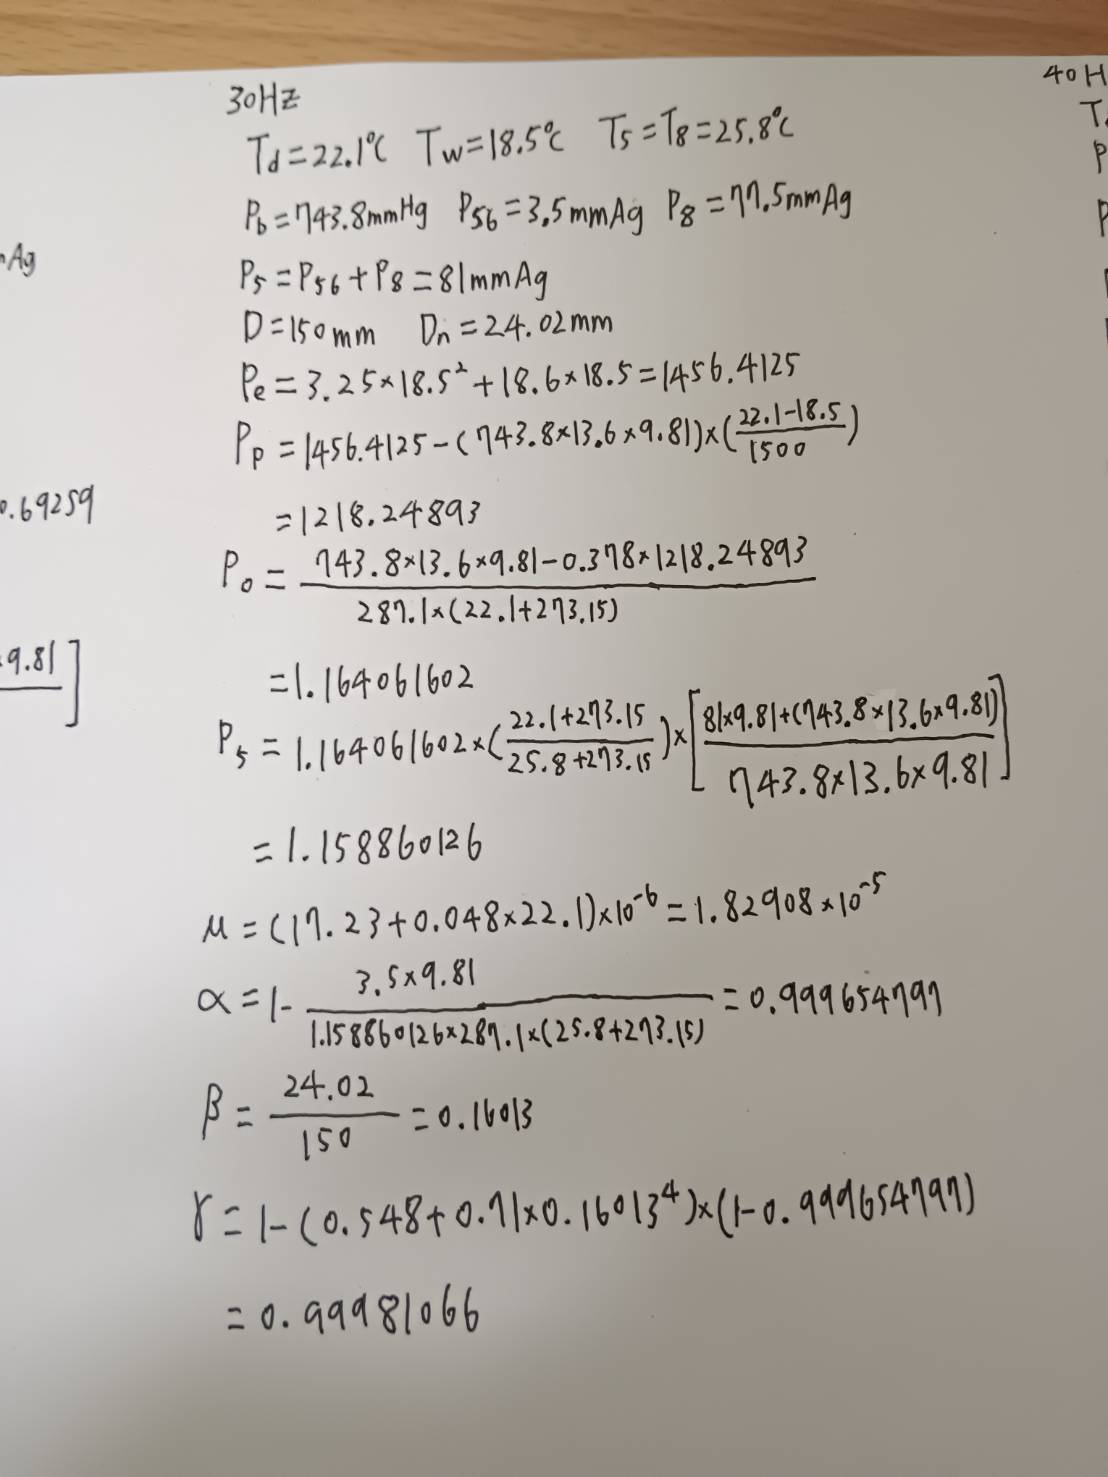 30Hz
Td=22.1℃ Tw=18.5℃ T5=T8=25.8℃
Pb=743.8mmHg P56=3.5mmAg P8=77.5mmAg
P5=P56+P8=81mmAg
D=150mm Dn=24.02mm
Pe=3.25×18.5²+18.6×18.5=1456.4125
Pp=1456.4125-(743.8×13.6×9.81)×(22.1-18.5/1500)
=1218.24893
Po=743.8×13.6×9.81-0.378×1218.24893/287.1×(22.1+273.15)
=1.164061602
P5=1.164061602×(22.1+273.15/25.8+273.15)×[81×9.81+(743.8×13.6×9.81)/743.8×13.6×9.81]
=1.158860126
μ=(17.23+0.048×22.1)×10⁻⁶=1.82908×10⁻⁵
α=1-3.5×9.81/1.158860126×287.1×(25.8+273.15)=0.999654797
β=24.02/150=0.16013
γ=1-(0.548+0.71×0.16013⁴)×(1-0.999654797)
=0.99981066
Ag
0.69259
9.81]
40H
T
P
P